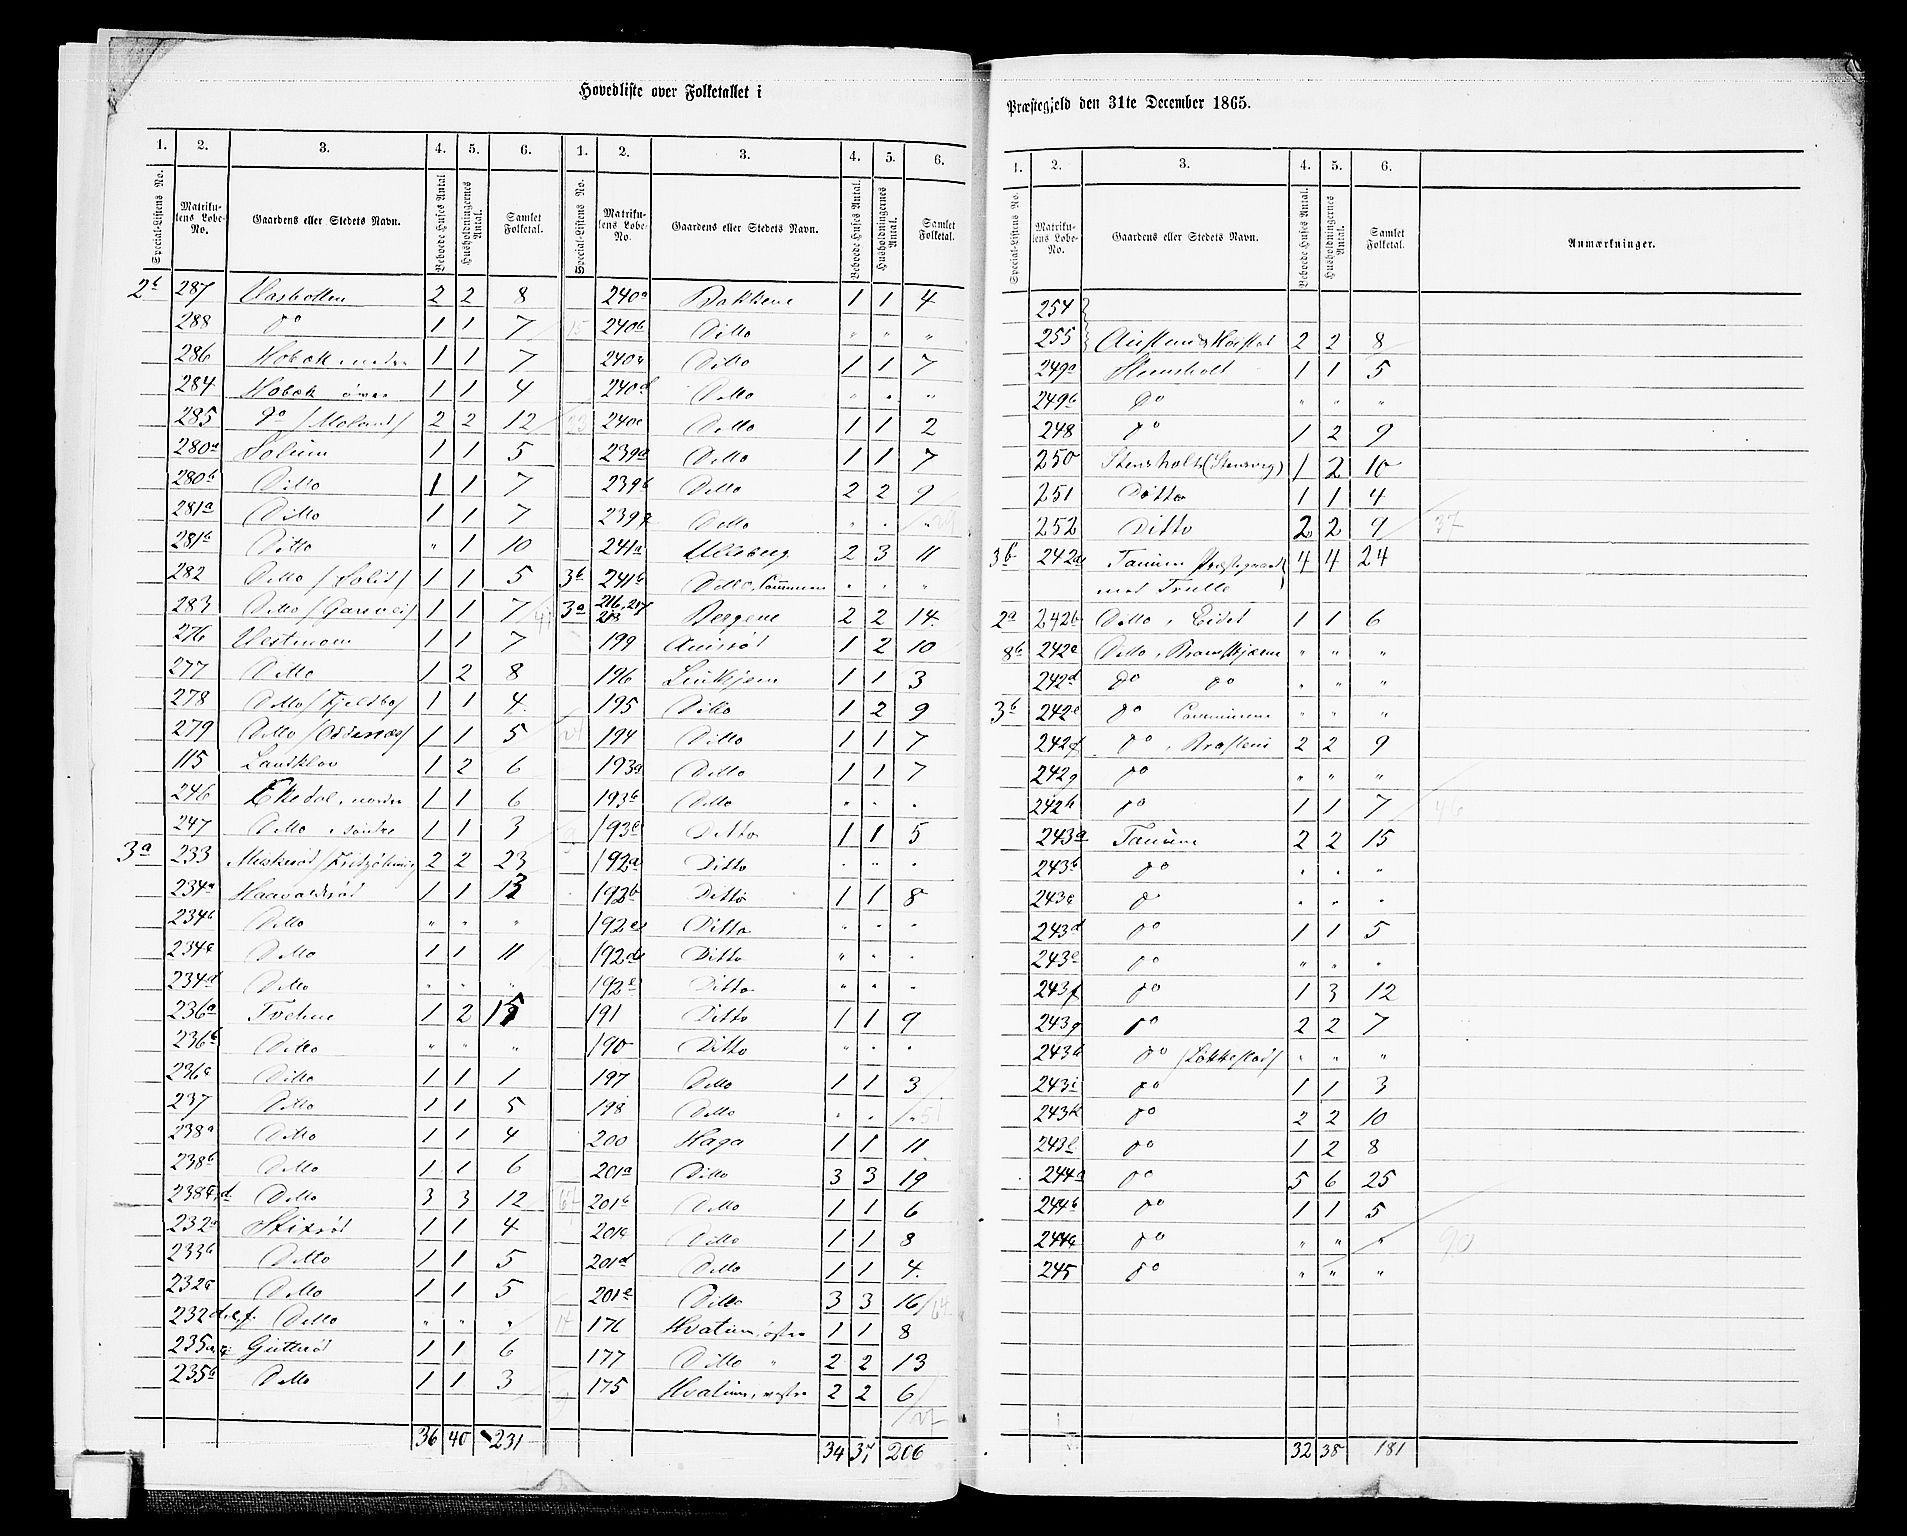 Hovedliste over Folketallet i
1. 2. 3. 4. 5. 6. 1. 2. 3. 4. 5. 6.
Special-Listens No. Matrikulens Løbe-No. Gaardens eller Stedets Navn. Beboede Huses Antal Husholdningernes Antal. Samlet Folketal. Special-Listens No. Matrikulens Løbe-No. Gaardens eller Stedets Navn. Beboede Huses Antal. Husholdningernes Antal. Samlet Folketal.
2b 287 Vasbotten 2 2 8
288 do 1 1 7
286 Hobæk nedre 1 1 7
284 Hobæk øvre 1 1 4
285 do /Moland/ 2 2 12
280a Solum 1 1 5
280b Ditto 1 1 7
281a Ditto 1 1 7
281b Ditto " 1 10
282 Ditto /Solid/ 1 1 5
283 Ditto 1 1 7
276 Vestmom 1 1 7
277 Ditto 1 2 8
278 Ditto /Fjeldbo/ 1 1 4
279 Ditto /Odisnæs/ 1 1 5
115 1 2 6
246 Ekedal, nordre 1 1 6
247 Ditto, søndre 1 1 3
3a 233 2 2 23
234a Haavaldsrød 1 1 13
234b Ditto " " "
234c Ditto 1 1 11
234d Ditto " " "
236a Tvetene 1 2 15
236b Ditto " " "
236c Ditto 1 1 1
237 Ditto 1 1 5
238a Ditto 1 1 4
238b Ditto 1 1 6
238c,d Ditto 3 3 12
232a 1 1 4
233b Ditto 1 1 5
232c Ditto 1 1 5
232d,e,f Ditto " " "
235a Guttrød 1 1 6
235b Ditto 1 1 3
36 40 231
240a Bakkene 1 1 4
240b Ditto " " "
240c Ditto 1 1 7
240d Ditto " " "
240e Ditto 1 1 2
239a Ditto 1 1 7
239b Ditto 2 2 9
239c Ditto " " "
241a Ulisberg 2 3 11
3b 241b Ditto, Commun " " "
3a 216, 217 218 Bergene 2 2 14
199 1 2 10
196 1 1 3
195 Ditto 1 2 9
194 Ditto 1 1 7
193a Ditto 1 1 7
193b Ditto " " "
193c Ditto 1 1 5
192a Ditto " " "
192b Ditto 1 1 8
192c Ditto " " "
192d Ditto " " "
192e Ditto " " "
191 Ditto 1 1 9
190 Ditto " " "
197 Ditto 1 1 3
198 Ditto " " "
200 Haga 1 1 11
201a Ditto 3 3 19
201b Ditto 1 1 6
201c Ditto 1 1 8
201d Ditto 1 1 4
201e Ditto 3 3 16
176 Hvatum, østre 1 1 8
177 Ditto " 2 2 13
175 Hvatum, vestre 2 2 6
34 37 206
Præstegjeld den 31te December 1865.
1. 2. 3. 4. 5. 6.
Special-Listens No. Matrikulens Løbe-No. Gaardens eller Stedets Navn. Beboede Huses Antal. Husholdningernes Antal. Samlet Folketal. Anmærkninger.
254
255 2 2 8
249a Stensholt 1 1 5
249b Do " " "
248 do 1 2 9
250 Stensholt (Stensvig) 1 2 10
251 Ditto 1 1 4
252 Ditto 2 2 9 37
3b 242a Tanum Præstegaard 4 4 24
med Trulle
2a 242b Ditto, Eidet 1 1 6
8b 242c Ditto, " " "
242d Do do " " "
3b 242e do Communen " " "
242f do, 2 2 9
242g do " " "
242h do 1 1 7 46
243a Tanum 2 2 15
243b do " " "
243c do " " "
243d do 1 1 5
243e do " " "
243f do 1 3 12
243g do 2 2 7
243h do /Løkkestad/ " " "
243i do 1 1 3
243k do 2 2 10
243l do 1 2 8
244a do 5 6 25
244b do 1 1 5
244c do " " " 90
245 do " " "
32 38 181